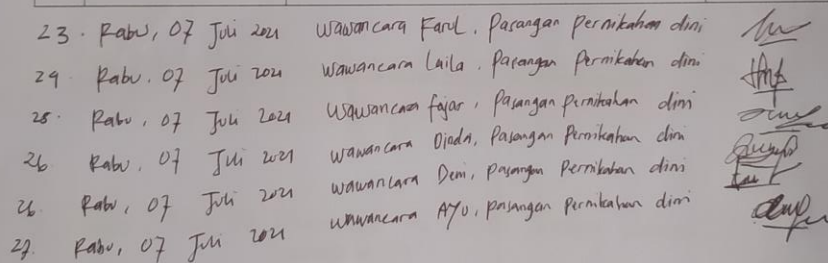 23. Rabu, 07 Juli 2021 wawancara Farul, Pasangan Pernikahan dini
24. Rabu, 07 Juli 2021 wawancara Laila, Pasangan Pernikahan dini
25. Rabu, 07 Juli 2021 wawancara fajar, Pasangan Pernikahan dini
26. Rabu, 07 Juli 2021 wawancara Dinda, Pasangan Pernikahan dini
26. Rabu, 07 Juli 2021 wawancara Deni, pasangan Pernikahan dini
27. Rabu, 07 Juli 2021 wawancara AYU, pasangan Pernikahan dini